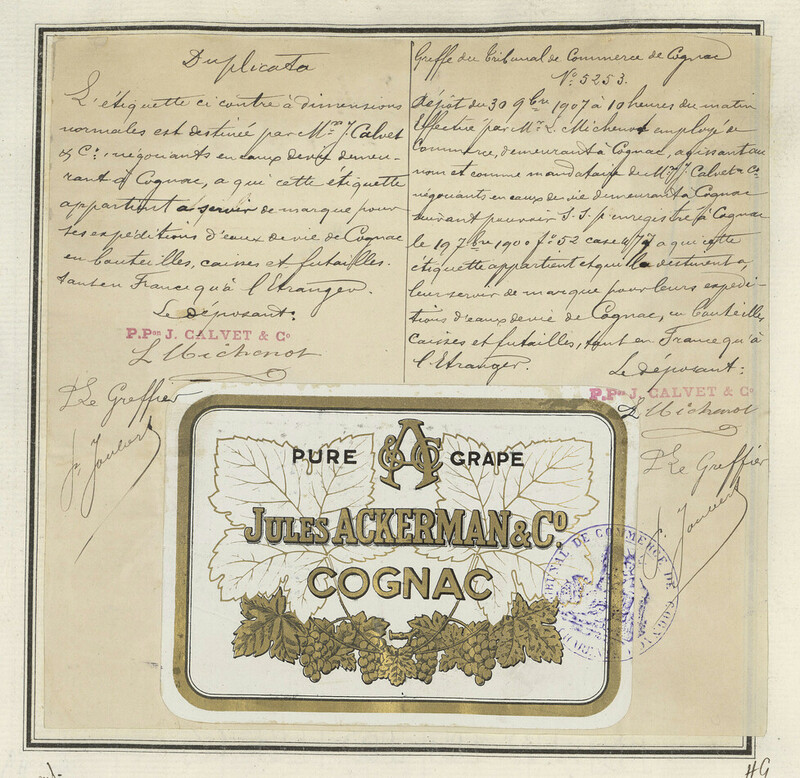 Duplicata
L'étiquette ci contre à dimensions
normales est destinée par M.rs J. Calvet
& Cie, négociants en eaux de vie demeu-
rant à Cognac, a qui cette étiquette
appartient a servir de marque pour
ses expéditions d'eaux de vie de Cognac
en bouteilles, caisses et futailles.
tant en France qu'à l'Etranger.
Le déposant:
P.Pon J. CALVET & Co
L Michenot
Le Greffier
Greffe du Tribunal de Commerce de Cognac
No 5253.
Dépôt du 30 9bre 1907 à 10 heures du matin
Effectué par Mr L. Michenot employé de
Commerce, demeurant à Cognac, agissant au
nom et comme mandataire de Mrs J. Calvet & Co
négociants en eaux de vie demeurant à Cognac
suivant pouvoir S.S.P. enregistré à Cognac
le 19 7bre 1900 fo 52 case 477 a qui cette
étiquette appartient et qui la destinent à
leur servir de marque pour leurs expédi-
tions d'eaux de vie de Cognac, en bouteilles
caisses et futailles, tant en France qu'à
l'Etranger.
Le déposant:
P.Pon J. CALVET & Co
L Michenot
Le Greffier
PURE A&Co GRAPE
JULES ACKERMAN & Co
COGNAC
TRIBUNAL DE COMMERCE DE COGNAC
HG